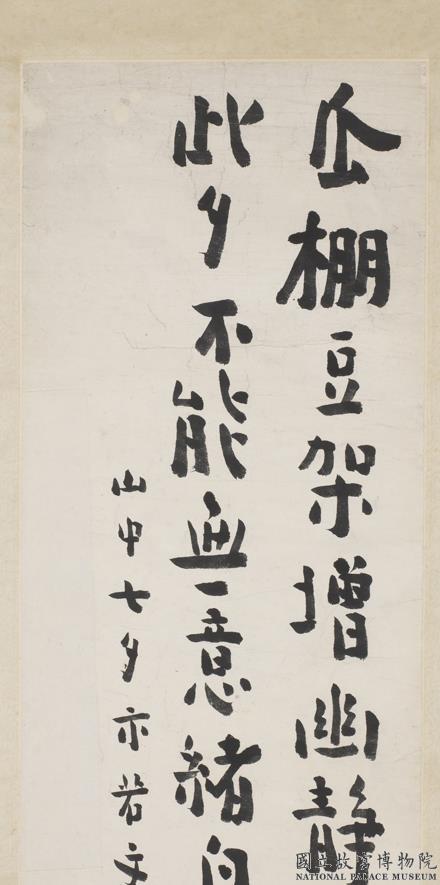 瓜棚豆架增幽靜
此夕不能無意緒向
山中七夕亦若文
國立故宮博物院
NATIONAL PALACE MUSEUM